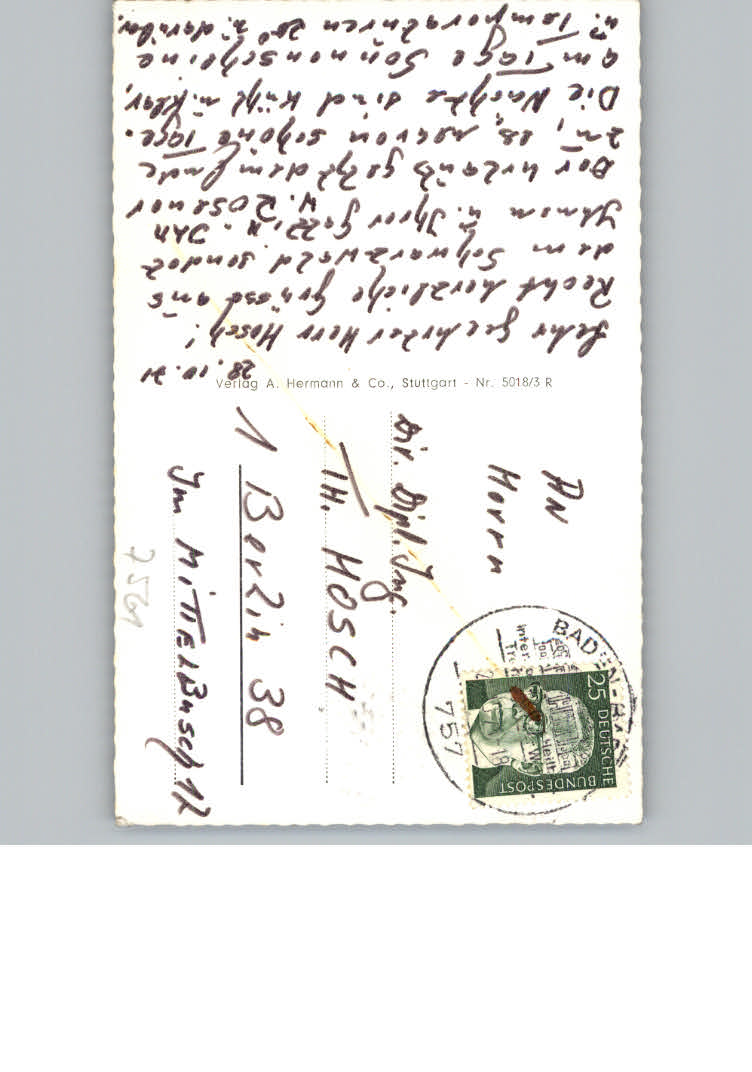 28. 10. 71
Sehr geehrter Herr Hosch!
Recht herzliche Grüsse aus
dem Schwarzwald sendet
Ihnen u. Ihrer Gattin. Ihr
Der Urlaub geht dem Ende
zu, es waren schöne Tage.
Die Nächte sind kühl u. klar,
am Tage Sonnenscheine
u. Temperaturen 20° u. darüber.
Verlag A. Hermann & Co., Stuttgart - Nr. 5018/3 R
AN
Herrn
Dir. Dipl. Ing.
TH. HOSCH
1 Berlin 38
Im Mittelbusch 12
BADEN-BADEN
757
25 DEUTSCHE
BUNDESPOST